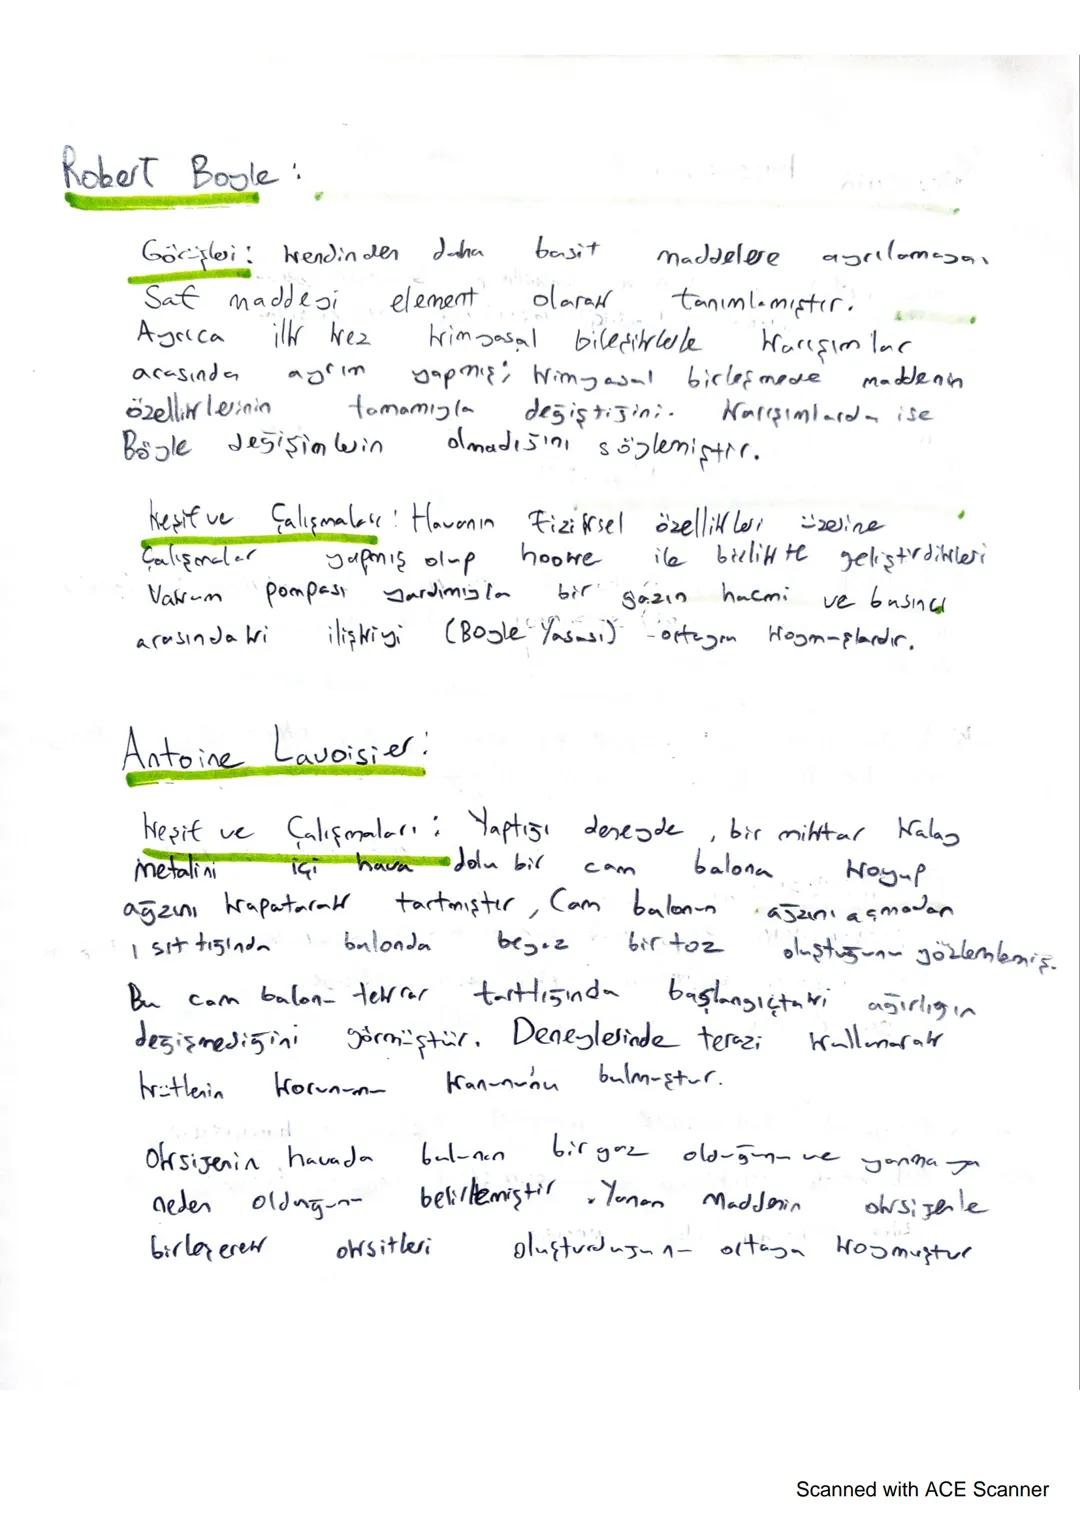 Robert Boyle :
Görüşleri : kendinden daha basit maddelere ayrılamayan
Saf maddeyi element olarak tanımlamıştır.
Ayrıca ilk kez kimyasal bileşiklerle karışımlar
arasında ayrım yapmış; kimyasal birleşmede maddenin
özelliklerinin tamamıyla değiştiğini. Karışımlarda ise
Böyle değişimlerin olmadığını söylemiştir.
Keşif ve Çalışmaları : Havanın Fiziksel özellikleri üzerine
Çalışmalar yapmış olup hooke ile birlikte geliştirdikleri
Vakum pompası yardımıyla bir gazın hacmi ve basıncı
arasındaki ilişkiyi (Boyle Yasası) ortaya koymuşlardır.
Antoine Lavoisier :
Keşif ve Çalışmaları : Yaptığı deneyde , bir miktar Kalay
metalini içi hava dolu bir cam balona koyup
ağzını kapatarak tartmıştır , Cam balonun ağzını açmadan
ısıttığında balonda beyaz bir toz oluştuğunu gözlemlemiş.
Bu cam balonu tekrar tarttığında başlangıçtaki ağırlığın
değişmediğini görmüştür. Deneylerinde terazi kullanarak
kütlenin korunumu kanununu bulmuştur.
Oksijenin havada bulunan bir gaz olduğunu ve yanmaya
neden olduğunu belirlemiştir . Yanan Maddenin oksijenle
birleşerek oksitleri oluşturduğunu ortaya koymuştur
Scanned with ACE Scanner